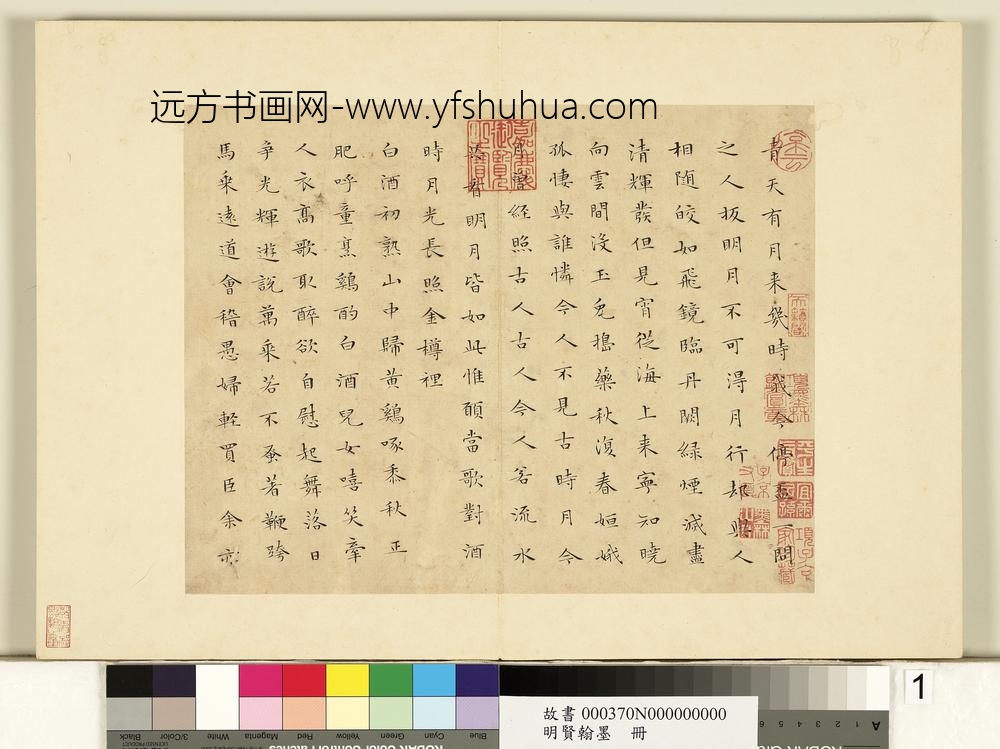 远方书画网-www.yfshuhua.com
青天有月来幾時我今停盃一問
之人扳明月不可得月行却與人
相随皎如飛鏡臨丹闕緑煙滅盡
清輝發但見宵従海上来寧知曉
向雲間没玉兔搗藥秋復春姮娥
孤悽與誰憐今人不見古時月今
月曾経照古人古人今人若流水
共看明月皆如此惟願當歌對酒
時月光長照金樽裡
白酒初熟山中歸黄鷄啄黍秋正
肥呼童烹鷄酌白酒兒女嘻笑牽
人衣高歌取醉欲自慰起舞落日
争光輝遊説萬乘若不蚤著鞭跨
馬乘遠道會稽愚婦軽買臣余亦
1
故書 000370N000000000
明賢翰墨 冊
Black
3/Color
White
Magenta
Red
Yellow
Green
Cyan
Blue
A 1 2 3 4 5 6